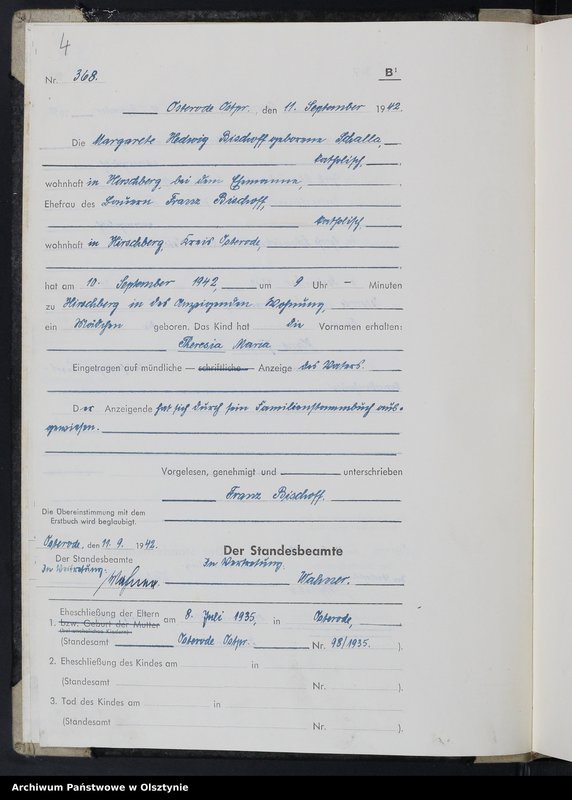 4
Nr. 368.
B¹
Osterode Ostpr., den 11. September 1942.
Die Margarete Hedwig Bischoff geborene Schalla,
katholisch,
wohnhaft in Hirschberg, bei dem Ehemanne,
Ehefrau des Bauern Franz Bischoff,
katholisch,
wohnhaft in Hirschberg, Kreis Osterode,
hat am 10. September 1942, um 9 Uhr – Minuten
zu Hirschberg in des Anzeigenden Wohnung,
ein Mädchen geboren. Das Kind hat die Vornamen erhalten:
Theresia Maria
Eingetragen auf mündliche — schriftliche — Anzeige des Vaters.
Der Anzeigende hat sich durch sein Familienstammbuch aus-
gewiesen.
Vorgelesen, genehmigt und unterschrieben
Franz Bischoff.
Die Übereinstimmung mit dem
Erstbuch wird beglaubigt.
Osterode, den 11. 9. 1942.
Der Standesbeamte
In Vertretung.
Der Standesbeamte
In Vertretung.
Wahner.
Eheschließung der Eltern
1. bzw. Geburt der Mutter am 8. Juli 1935, in Osterode,
(bei unehelichen Kindern)
(Standesamt Osterode Ostpr. Nr. 98/1935. ).
2. Eheschließung des Kindes am in
(Standesamt Nr. ).
3. Tod des Kindes am in
(Standesamt Nr. ).
Archiwum Państwowe w Olsztynie